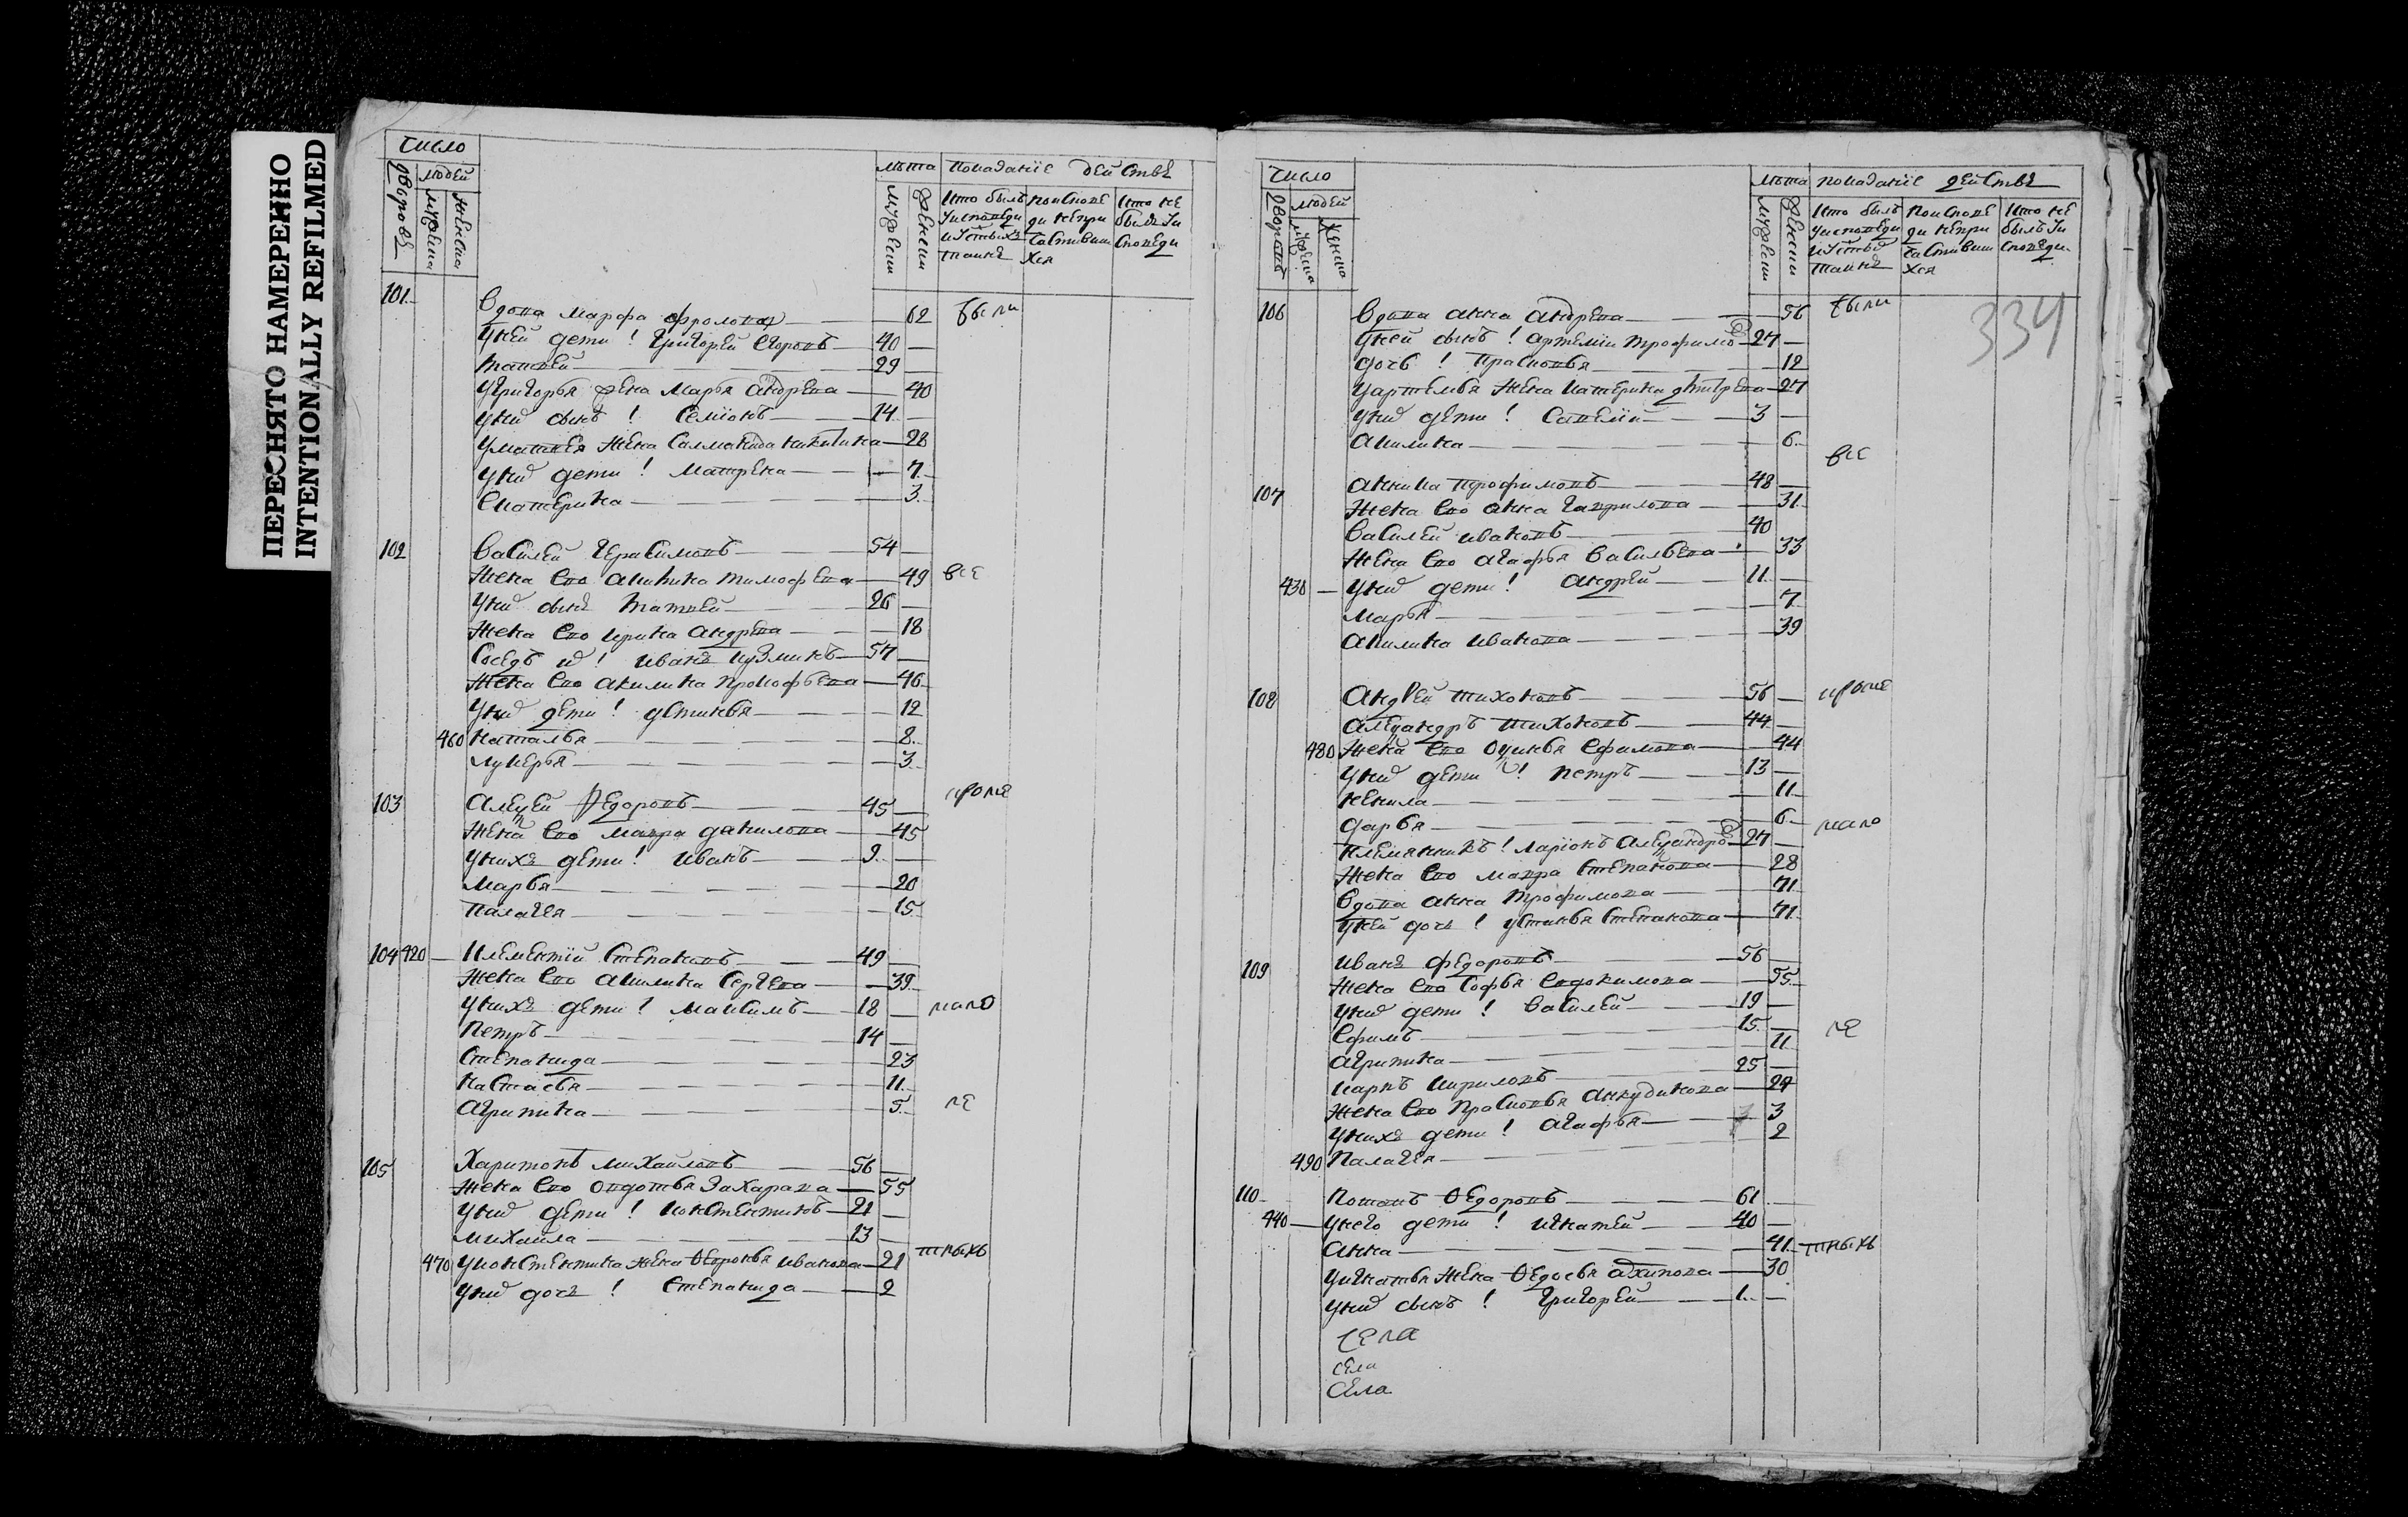 ПЕРЕСНЯТО НАМЕРЕННО
INTENTIONALLY REFILMED
Число
Дворовъ
людей
мужеска
женска
лѣта
мужески
женски
показанїе действъ
кто былъ у исповеди и у стыхъ таинъ
по исповеди не причастившихся
кто не былъ у исповеди
101. Вдова Марфа Фролова — 62 были
У ней дети! Григорей Егоровъ — 40
Матвей — 29
У Григорья жена Марья Андрева — 40
У них сынъ! Семїонъ — 14.
У Матвея жена Саламанида Никитина — 28
У них дети! Матрена — 7.
Екатерина — 3.
102 Василей Герасимовъ — 54
Жена ево Акилина Тимофева — 49 все
У них сынъ Матвей — 26
Жена ево Ирина Андрева — 18
Соседъ их! Иванъ Кузминъ — 57
Жена ево Акилина Прокофьева — 46.
У них дети! Устинья — 12
460 Наталья — 8.
Лукерья — 3.
103 Алеѯей Федоровъ — 45 кроме
Жена ево Мавра Данилова — 45
У нихъ дети! Иванъ — 9.
Марья — 20
Палагея — 15.
104 420 — Клементїй Степановъ — 49
Жена ево Акилина Сергева — 39.
У нихъ дети! Максимъ — 18 мало
Петръ — 14
Степанида — 23
Настасья — 11.
Агрипина — 5. ле
105 Харитонъ Михаиловъ — 56
Жена ево Овдотья Захарава — 55
У них дети! Констентинъ — 21
Михаила — 13
470 У Констентина жена Ѳевронья Иванова — 21 тныхъ
У них дочь! Степанида — 2
Число
Дворовъ
людей
мужеска
женска
лѣта
мужески
женски
показанїе действъ
кто былъ у исповеди и у стых таинъ
по исповеди не причастившихся
кто не былъ у исповеди
334
106 Вдова Анна Андрева — 56 были
У ней сынъ! Артемїи Трофимо — 27
дочь! Прасковья — 12
У Артемья жена Катерина Дмитрева — 27
У них дети! Савелїй — 3
Акилина — 6.
все
107 Аникиа Трофимовъ — 48
Жена ево Анна Гаврилова — 31.
Василей Ивановъ — 40
Жена ево Агафья Васильева — 33
430 — У них дети! Андрей — 11.
Марья — 7.
Акилина Иванова — 39
108 Андрей Тихоновъ — 56 кроме
Алеѯандръ Тихоновъ — 44
480 Жена ево Оѯинья Ефимова — 44
У них дети! Петръ — 13
Ненила — 11.
Дарья — 6.
мало
Племянникъ! Ларїонъ Алеѯандро — 27
Жена ево Мавра Степанова — 28
Вдова Анна Трофимова — 71.
У ней дочь! Устинья Степанова — 71.
109 Иванъ Федоровъ — 56
Жена ево Софья Евдокимова — 55.
У них дети! Василей — 19
Ефимъ — 15. ле
Агрипина — 11.
Карпъ Кириловъ — 25
Жена ево Прасковья Анкудинова — 24
У нихъ дети! Агафья — 3
490 Палагея — 2
110. Потапъ Ѳедоровъ — 61
440 — У него дети! Игнатей — 40
Анна — 41. тныхъ
У Игнатья жена Ѳедосья Архипова — 30
У них сынъ! Григорей — 1.
села
села
Села